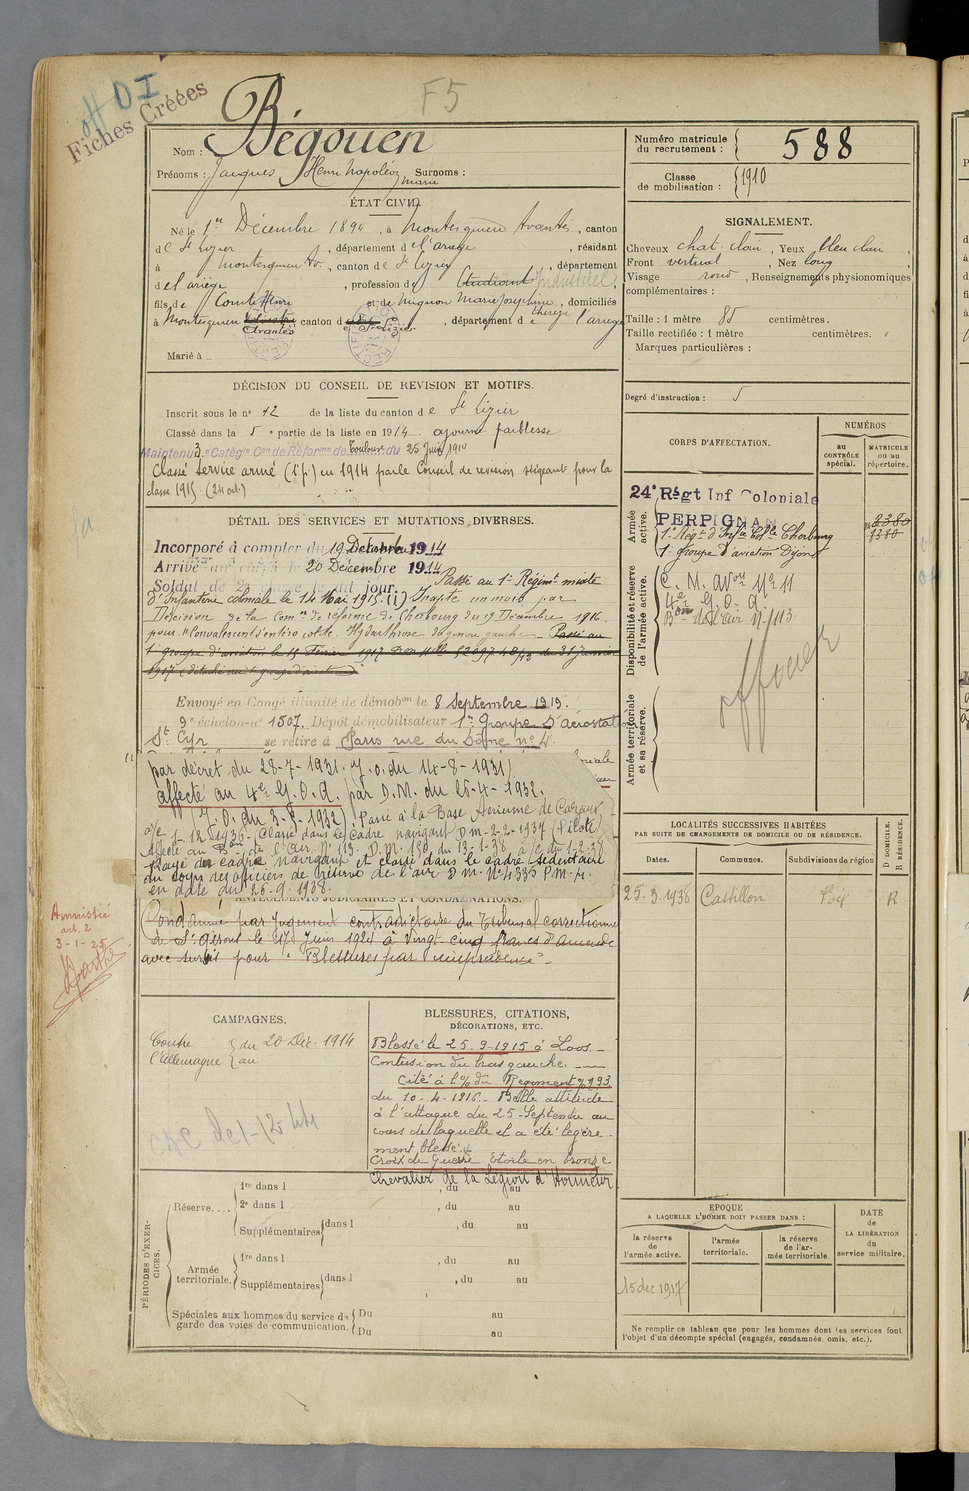 off DI
Fiches Créées
F5
Nom : Bégouën
Prénoms : Jacques Henri Napoléon Marie Surnoms :
Numéro matricule du recrutement : 588
Classe de mobilisation : 1910
ÉTAT CIVIL.
Né le 1er Décembre 1894, à Montesquieu Avantès, canton
de St Lizier, département de l'ariège, résidant
à Montesquieu Av., canton de St Lizier, département
de l ariège, profession d Etudiant Industriel
fils de Comte Henri et de Mignon Marie Josephine Thérèse, domiciliés
à Montesquieu Avantès canton d e St Lizier, département d e l'ariège
Marié à
SIGNALEMENT.
Cheveux chat. clair, Yeux bleu clair
Front vertical, Nez long,
Visage rond, Renseignements physionomiques
complémentaires :
Taille : 1 mètre 85 centimètres.
Taille rectifiée : 1 mètre centimètres.
Marques particulières :
Degré d'instruction : 5
DÉCISION DU CONSEIL DE REVISION ET MOTIFS.
Inscrit sous le n° 12 de la liste du canton d e St Lizier
Classé dans la 5e partie de la liste en 1914. ajourné faiblesse
Maintenu 3e Catégie Con de Réforme de Toulouse du 25 Juin 1914
Classé service armé (1e p.) en 1914 par le Conseil de revision siégeant pour la
classe 1915 (24 oct.)
CORPS D'AFFECTATION.
NUMÉROS
au CONTRÔLE spécial.
MATRICULE OU AU répertoire.
Armée active.
24e Régt Inf Coloniale
PERPIGNAN
1er Régt d'Infie Colle Cherbourg
1er groupe d'aviation Dijon
8380
1380
Disponibilité et réserve de l'armée active.
C. M. Avon N° 11
4e G. O. A.
Bon de l'air N° 113
officier
Armée territoriale et sa réserve.
DÉTAIL DES SERVICES ET MUTATIONS DIVERSES.
Incorporé à compter du 19 Décembre 1914
Arrivé au corps le 20 Décembre 1914
Soldat de 2e classe le dit jour. Passé au 1er Régimt mixte
d'Infanterie coloniale le 14 Mai 1915. (1) Inapte un mois par
Décision de la Comon de réforme de Cherbourg du 19 Décembre 1916
pour "Convalescent d'entéro colite. Hydarthrose du genou gauche - Passé au
1er groupe d'aviation le 15 Février 1917
1917 (détaché au 1er groupe d'aviation)
Envoyé en Congé illimité de démobon le 8 Septembre 1919.
9e échelon-n° 1507. Dépôt démobilisateur 1er Groupe d'aérostation
St Cyr se retire à Paris rue du Dôme n° 4
par décret du 28-7-1931. J.O. du 14-8-1931)
affecté au 4e G.O.A. par D.M. du 25-4-1932.
(J.O. du 3-5-1932). Passé à la Base Aérienne de Cazaux
a/c 1-12-1936- (Classé dans le Cadre navigant D.M. 2-2-1937 (Pilote)
Affecté au Bon de l'air N° 113. D.M. 190 du 13-1-38 a/c du 1-2-38
Rayé du cadre navigant et classé dans le cadre sédentaire
du corps des officiers de réserve de l'air D.M. N° 4335 P.M.-R.
en date du 26-9-1938.
ANTÉCÉDENTS JUDICIAIRES ET CONDAMNATIONS.
Condamné par jugement contradictoire du Tribunal correctionnel
de St Girons le 17 Juin 1924 à Vingt-cinq francs d'amende
avec sursis pour "Blessures par imprudence" -
Amnistié
art. 2
3-1-25
LOCALITÉS SUCCESSIVES HABITÉES
PAR SUITE DE CHANGEMENTS DE DOMICILE OU DE RÉSIDENCE.
Dates.
Communes.
Subdivisions de région
D DOMICILE. R RÉSIDENCE.
25.3.1938 Castillon Foix R
CAMPAGNES.
Contre l'Allemagne { du 20 Déc. 1914
au
BLESSURES, CITATIONS,
DÉCORATIONS, ETC.
Blessé le 25-9-1915 à Loos.-
Contusion du bras gauche.
Cité à l'O/ du Régiment N° 193
du 10-4-1916. Belle attitude
à l'attaque du 25-Septembre au
cours de laquelle il a été légère-
ment blessé
Croix de Guerre Etoile en bronze
Chevalier de la Légion d'Honneur
PÉRIODES D'EXERCICES.
Réserve....
1re dans l , du au
2e dans l , du au
Supplémentaires dans l , du au
Armée territoriale.
1re dans l , du au
Supplémentaires dans l , du au
Spéciales aux hommes du service de garde des voies de communication. Du au
Du au
EPOQUE
A LAQUELLE L'HOMME DOIT PASSER DANS :
la réserve de l'armée active.
l'armée territoriale.
la réserve de l'armée territoriale.
DATE de LA LIBÉRATION du service militaire.
15 dec 1917
Ne remplir ce tableau que pour les hommes dont les services font
l'objet d'un décompte spécial (engagés, condamnés. omis, etc.).